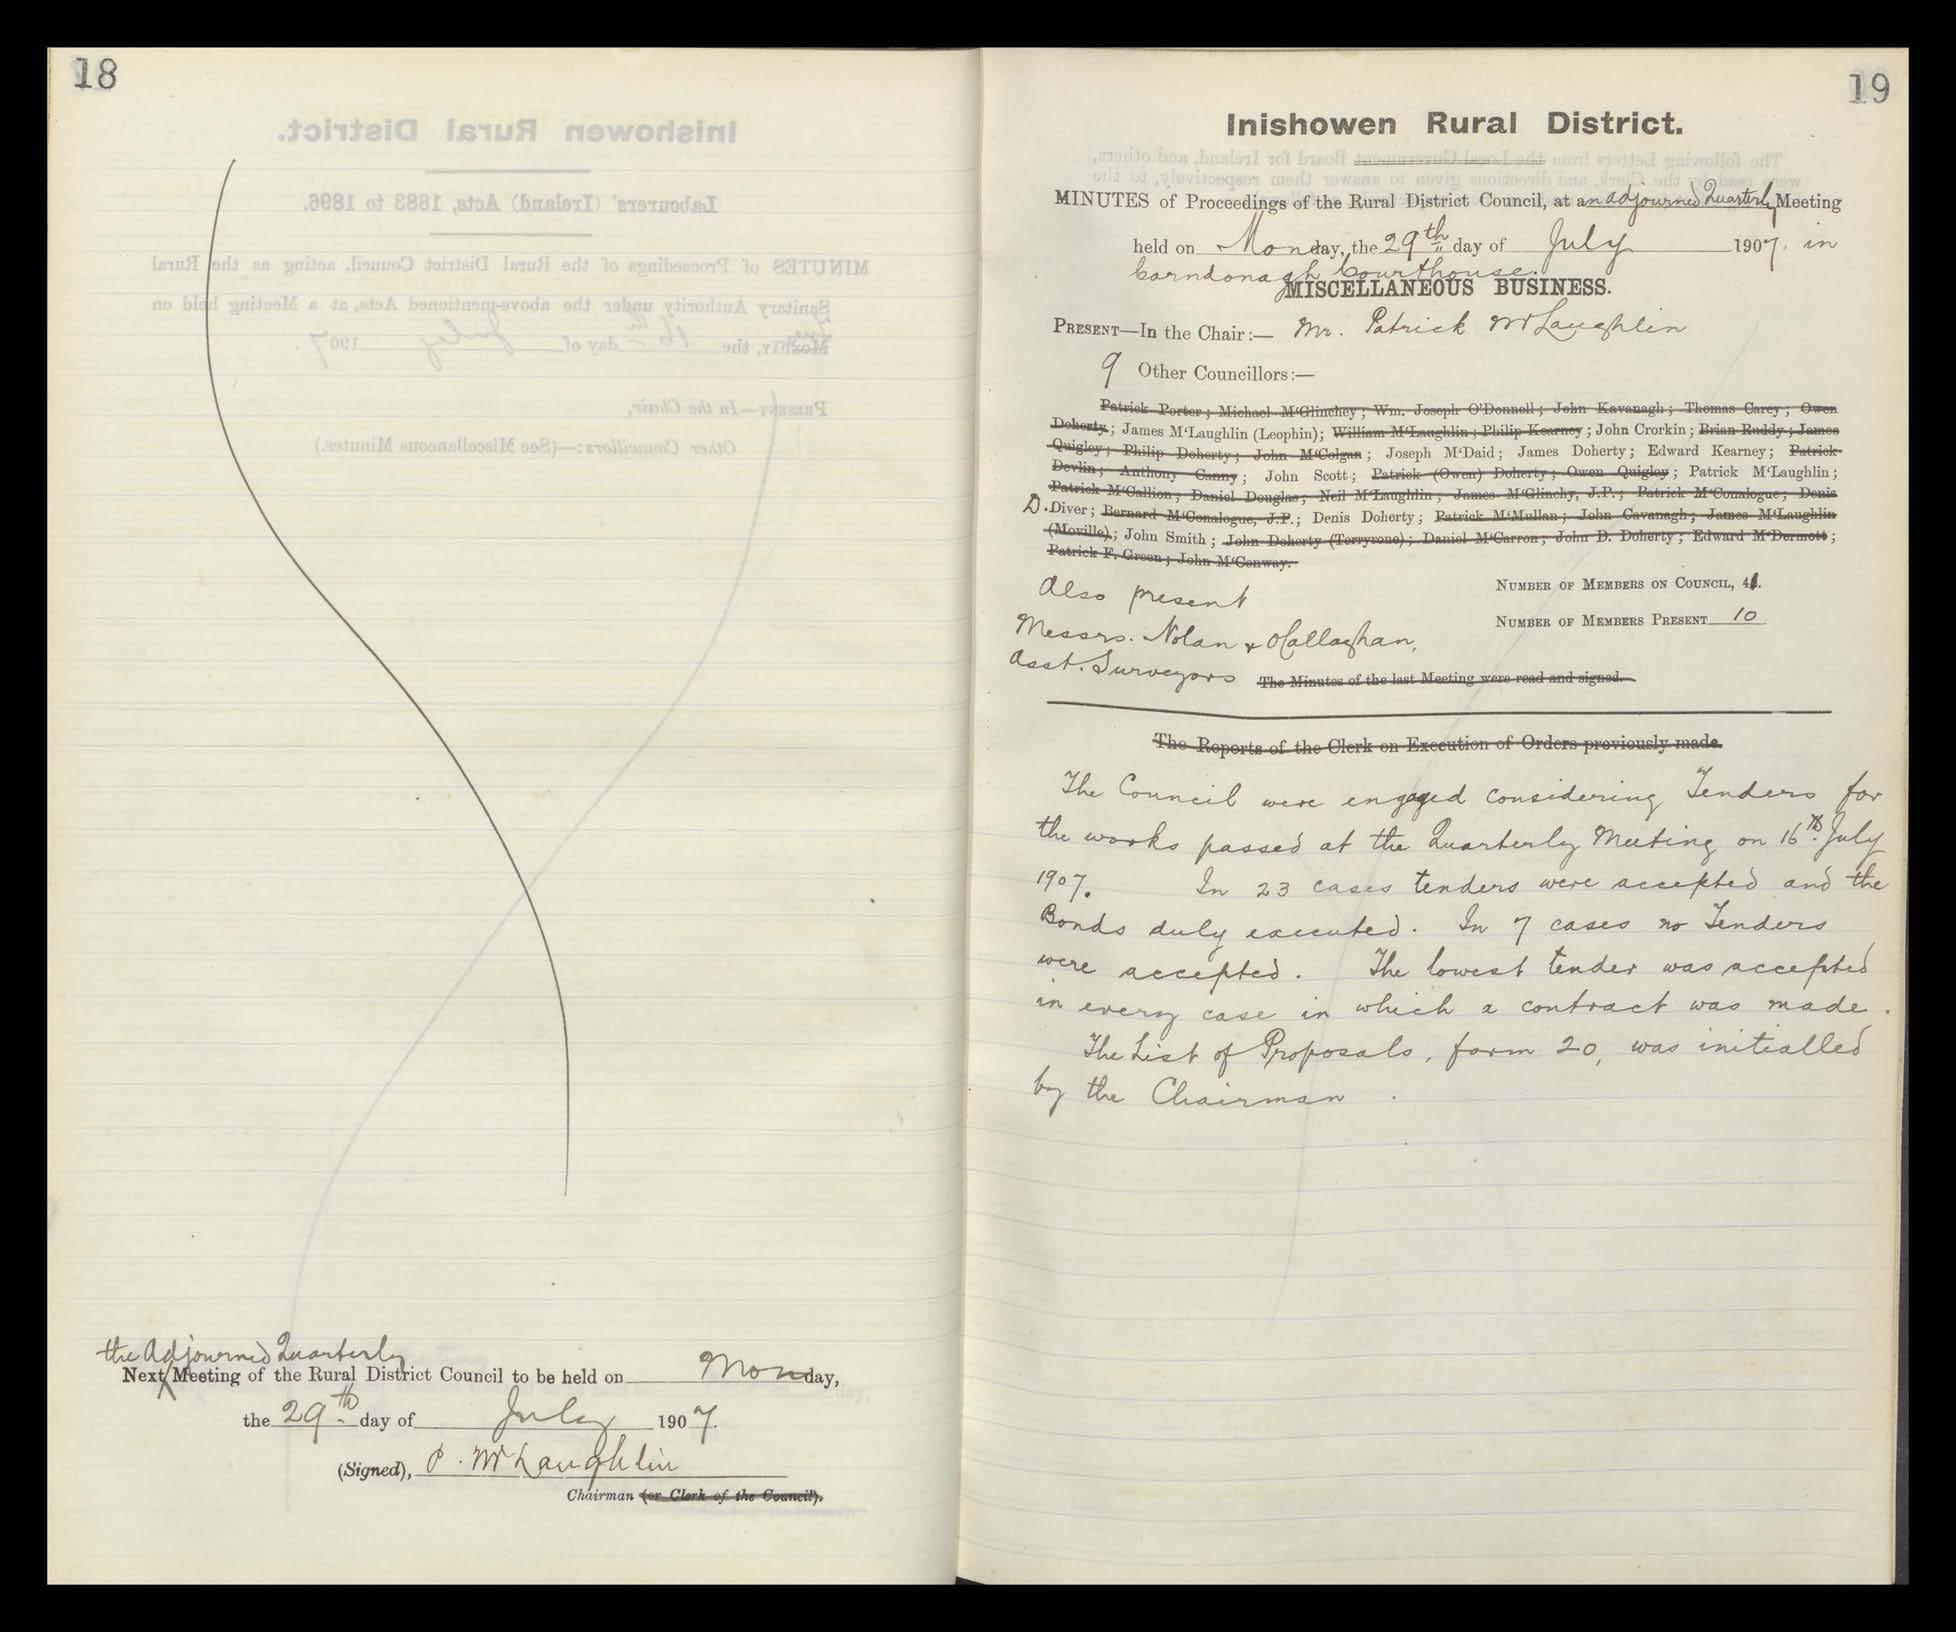 18
the Adjourned Quarterly
Next Meeting of the Rural District Council to be held on Monday,
the 29th day of July 1907.
(Signed), P. McLaughlin
Chairman (or Clerk of the Council).
19
Inishowen Rural District.
MINUTES of Proceedings of the Rural District Council, at an adjourned Quarterly Meeting
held on Monday, the 29th day of July 1907. in
Carndonagh Courthouse.
MISCELLANEOUS BUSINESS.
PRESENT—In the Chair:— Mr. Patrick McLaughlin
9 Other Councillors:—
Patrick Porter; Michael M‘Glinchey; Wm. Joseph O'Donnell; John Kavanagh; Thomas Carey; Owen
Doherty; James M‘Laughlin (Leophin); William M‘Laughlin; Philip Kearney; John Crorkin; Brian Ruddy; James
Quigley; Philip Doherty; John M‘Colgan; Joseph M‘Daid; James Doherty; Edward Kearney; Patrick
Devlin; Anthony Canny; John Scott; Patrick (Owen) Doherty; Owen Quigley; Patrick M‘Laughlin;
Patrick M‘Callion; Daniel Douglas; Neil M‘Laughlin; James M‘Glinchy, J.P.; Patrick M‘Conalogue; Denis
D. Diver; Bernard M‘Conalogue, J.P.; Denis Doherty; Patrick M‘Mullan; John Cavanagh; James M‘Laughlin
(Moville); John Smith; John Doherty (Terryrone); Daniel M‘Carron; John D. Doherty; Edward M‘Dermott;
Patrick F. Green; John M‘Conway.
Also present
NUMBER OF MEMBERS ON COUNCIL, 41.
Messrs. Nolan & O'Callaghan,
NUMBER OF MEMBERS PRESENT 10
Asst. Surveyors
The Minutes of the last Meeting were read and signed.
The Reports of the Clerk on Execution of Orders previously made.
The Council were engaged considering Tenders for
the works passed at the Quarterly Meeting on 16th July
1907. In 23 cases tenders were accepted and the
Bonds duly executed. In 7 cases no Tenders
were accepted. The lowest tender was accepted
in every case in which a contract was made.
The List of Proposals, form 20, was initialled
by the Chairman.